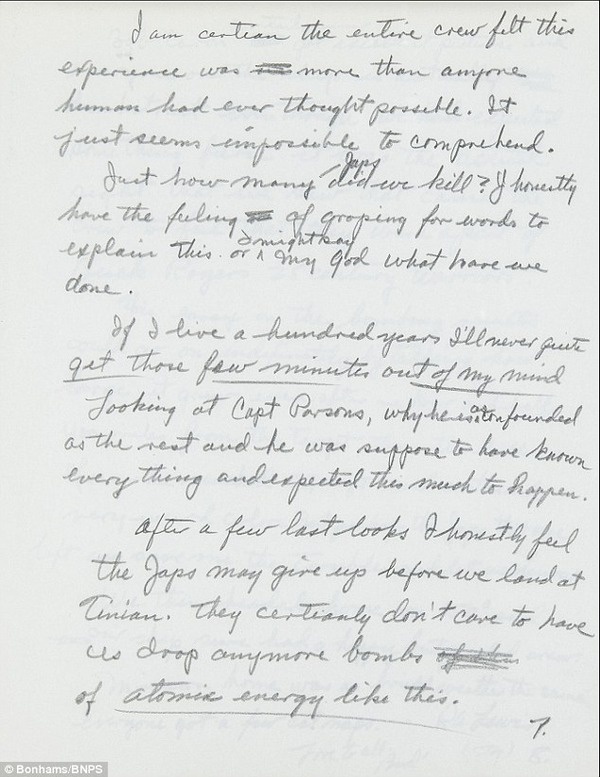 I am certian the entire crew felt this
experience was more than anyone
human had ever thought possible. It
just seems impossible to comprehend.
Just how many Japs did we kill? I honestly
have the feeling of groping for words to
explain this or I might say My God what have we
done.
If I live a hundred years I'll never quite
get those few minutes out of my mind
Looking at Capt Parsons, why he is as confounded
as the rest and he was suppose to have known
everything and expected this much to happen.
After a few last looks I honestly feel
the Japs may give up before we land at
Tinian. They certianly don't care to have
us drop anymore bombs
of atomic energy like this.
7.
© Bonhams/BNPS